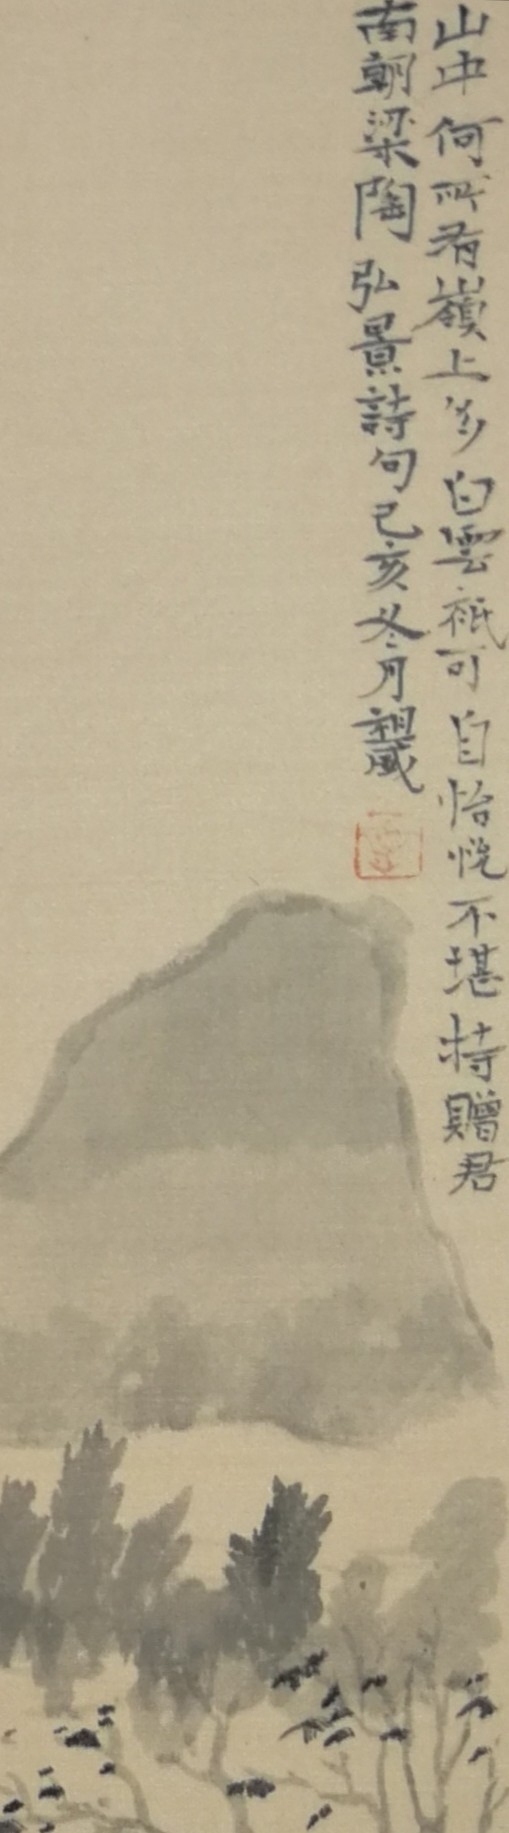 山中何所有嶺上多白雲祇可自怡悅不堪持贈君
南朝梁陶弘景詩句己亥冬月